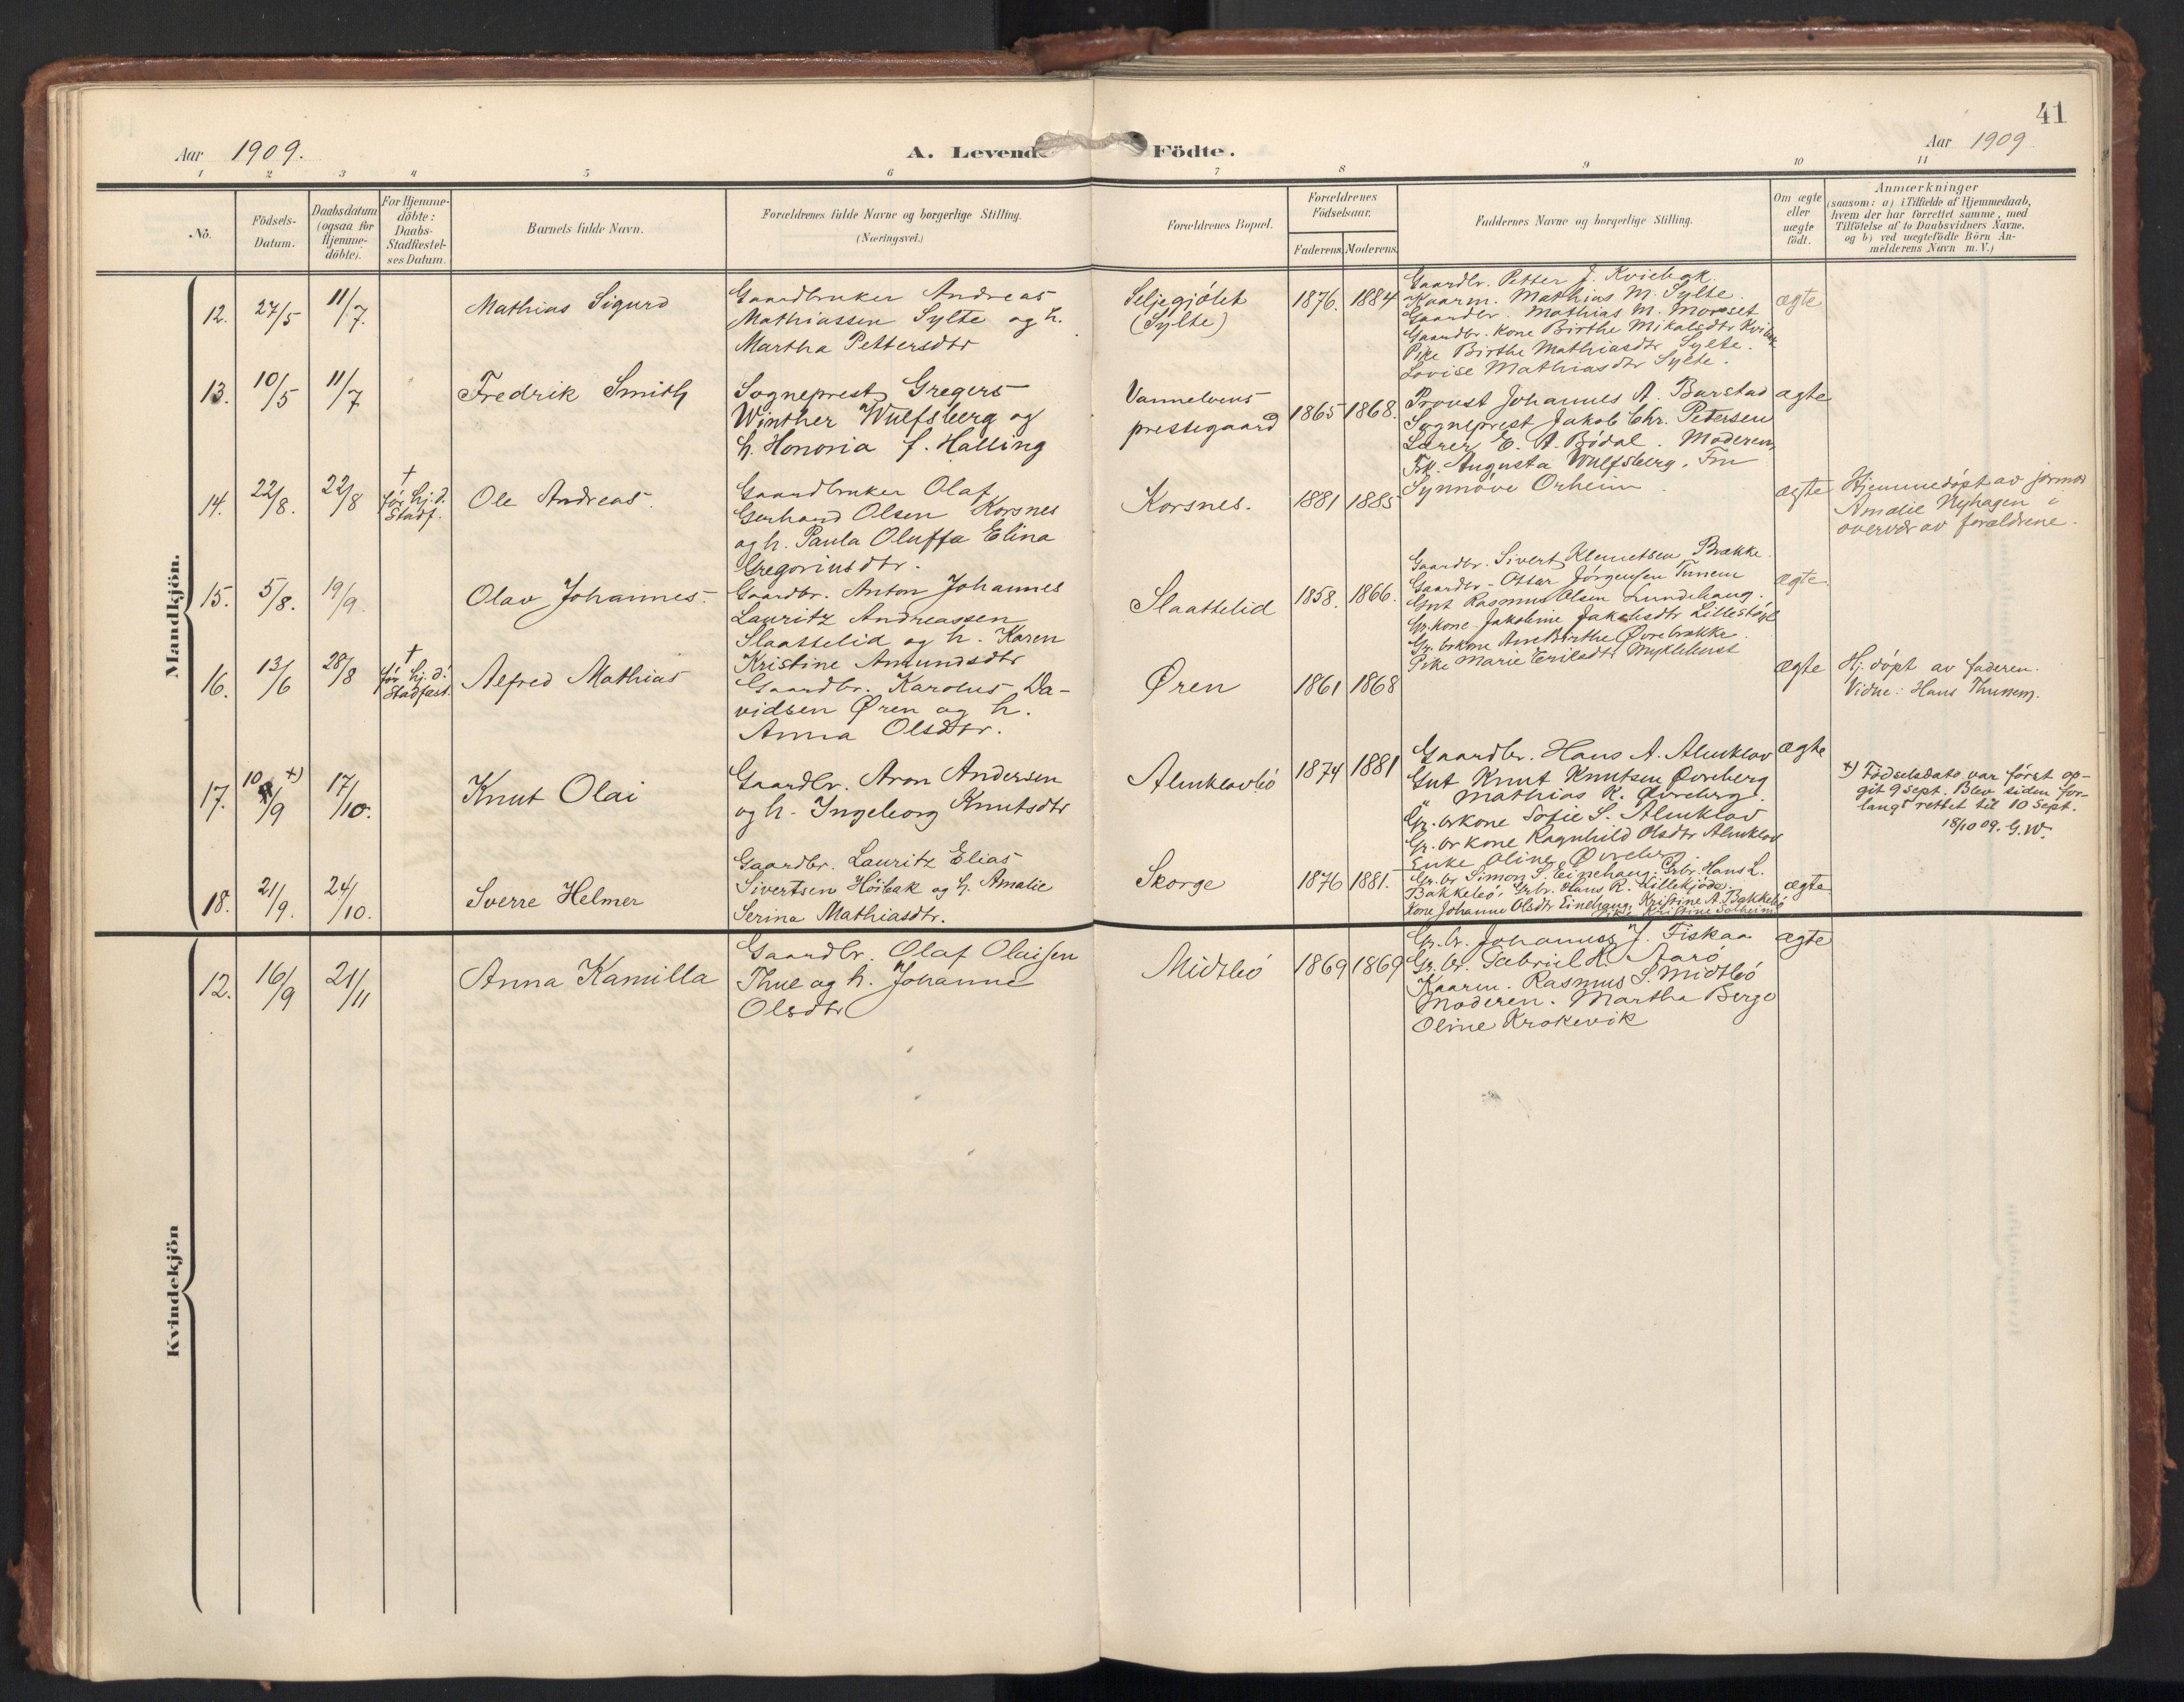 41
Aar 1909.
A. Levende Födte.
Aar 1909
1 2 3 4 5 6 7 8 9 10 11
No.
Födsels-
Datum.
Daabsdatum
(ogsaa for
Hjemme-
döbte).
For Hjemme-
döbte:
Daabs-
Stadfæstel-
ses Datum.
Barnets fulde Navn.
Forældrenes fulde Navne og borgerlige Stilling.
(Næringsvei.)
Forældrenes Bopæl.
Forældrenes
Födselsaar.
Faderens Moderens
Faddernes Navne og borgerlige Stilling.
Om ægte
eller
uægte
födt.
Anmærkninger
(saasom: a) i Tilfælde af Hjemmedaab,
hvem der har forrettet samme, med
Tilföielse af to Daabsvidners Navne,
og b) ved uægtefödte Börn An-
melderens Navn m. V.)
Mandkjön.
12. 27/5 11/7. Mathias Sigurd
Gaardbruker Andreas
Mathiassen Sylte og h.
Martha Pettersdtr
Seljegjölet
(Sylte)
1876. 1884
Gaardbr. Petter J.
Kaarm. Mathias M. Sylte.
Gaardbr. Mathias M. Morset
Gaardbr. kone Birthe Mikalsdtr
Pike Birthe Mathiasdtr Sylte.
Lovise Mathiasdtr Sylte.
ægte
13. 10/5 11/7 Fredrik Smith
Sogneprest Gregers
Winther Wulfsberg og
h. Honoria f. Halling
Vannelvens
prestegaard
1865 1868.
Provst Johannes A. Barstad
Sogneprest Jakob Chr. Petersen
Lærer E. A. Bödal. Moderen,
Frk. Augusta Wulfsberg. Fru
Synnöve Orheim
ægte
14. 22/8. 22/8
†
för hj.d.
Stadf.
Ole Andreas.
Gaardbruker Olaf
Gerhard Olsen Korsnes
og h. Paula Oluffa Elina
Gregoriusdtr.
Korsnes.
1881 1885
ægte
Hjemmedöpt av jormor
Amalie Nyhagen i
overvær av forældrene.
15. 5/8. 19/9. Olav Johannes.
Gaardbr. Anton Johannes
Lauritz Andreassen
Slaattelid og h. Karen
Kristine Amundsdtr
Slaattelid
1858. 1866.
Gaardbr. Sivert Klemetsen Brække.
Gaardbr. Ottar Jörgensen Tunem
Gut Rasmus Olsen Lundehaug.
Gr. kone Jakobine Jakobsdtr
Gr. brkone Ane Birthe Övrebrække.
Pike Marie Eriksdtr Myklebust
ægte.
16. 13/6 28/8
†
för hj.d.
Stadfæst.
Alfred Mathias
Gaardbr. Karolus Da-
vidsen Øren og h.
Anna Olsdtr.
Øren
1861 1868
ægte
Hj.döpt av faderen.
Vidne: Hans Thunem.
17. 10/9 +) 17/10. Knut Olai
Gaardbr. Aron Andersen
og h. Ingeborg Knutsdtr
Almklovbö
1874 1881
Gaardbr. Hans A. Almklov
Gut Knut Knutsen Øvreberg
" Mathias K. Øvreberg.
Gr. brkone Sofie S. Almklov
Gr. br kone Ragnhild Olsdtr Almklov
Enke Oline Øvreberg
ægte
+) Födselsdato var först op-
git 9 Sept. Blev siden for-
langt rettet til 10 Sept.
18/10 09. G.W.
18. 21/9. 24/10. Sverre Helmer
Gaardbr. Lauritz Elias
Sivertsen Höibak og h. Amalie
Serina Mathiasdtr.
Skorge
1876 1881.
Gr.br Simon S. Einehaug, Grbr. Hans L.
Bakkebö, Grbr. Hans R. Lillekjöde.
Kone Johanne Olsdtr Einehaug, Kristine A. Bakkebö
Pike Kristine Solheim
ægte
Kvindekjön
12. 16/9 21/11 Anna Kamilla
Gaardbr. Olaf Olaisen
Thue og h. Johanne
Olsdtr
Midtbö
1869 1869
Gr.br. Johannes J. Fiskaa
Gr. br. Gabriel K. Aarö
Kaarm. Rasmus S. Midtbö
Moderen. Martha Berge
Oline Krokevik
ægte